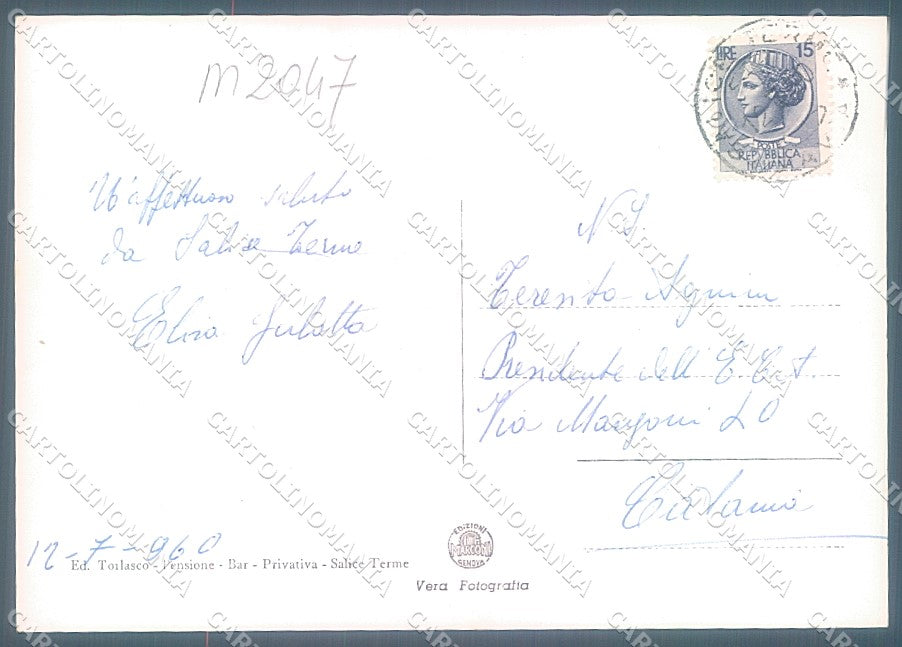 m 2047
LIRE 15
POSTE
REPVBBLICA
ITALIANA
Un'affettuoso saluto
da Salice Terme
Elisa
N S
Teresita
Presidente dell'
Via Manzoni 20
Catania
12-7-960
Ed. Torlasco - Pensione - Bar - Privativa - Salice Terme
EDIZIONI
MARCONI
GENOVA
Vera Fotografia
CARTOLINOMANIA